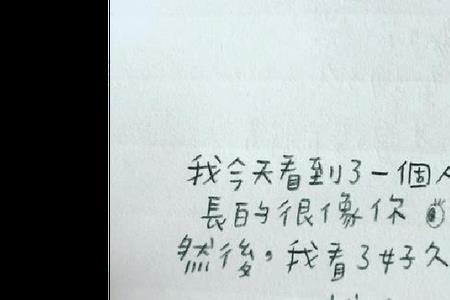 我今天看到了一個人
長的很像你
然後，我看了好久